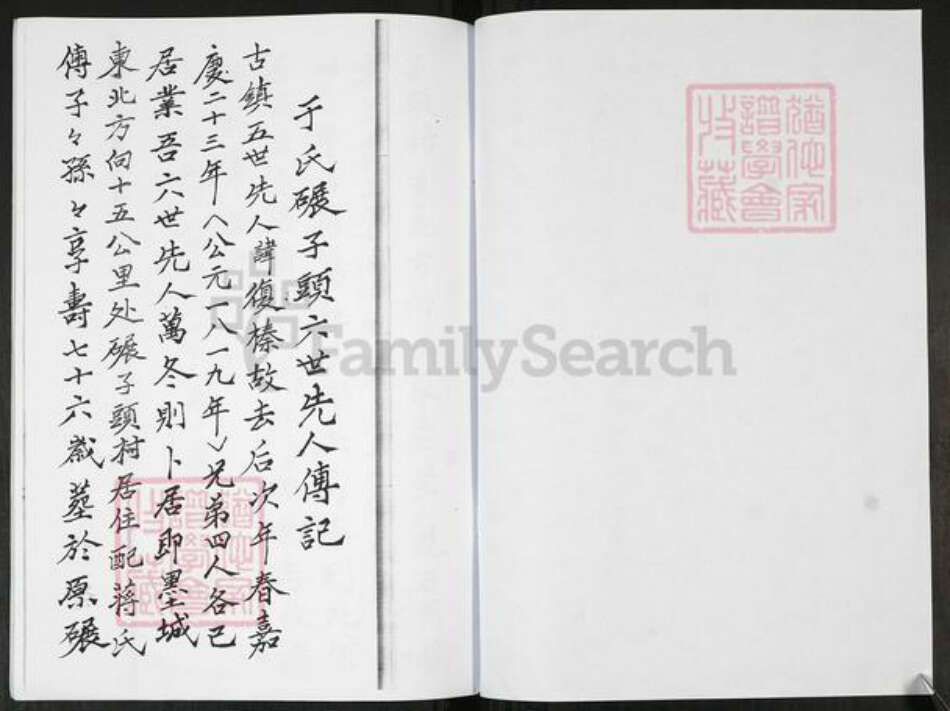 于氏碾子頭六世先人傳記
古鎮五世先人諱復榛故去后次年春嘉
慶二十三年(公元一八一九年)兄弟四人各已
居業吾六世先人萬冬則卜居即墨城
東北方向十五公里处碾子頭村居住配蔣氏
傳子々孫々享壽七十六歲墓於原碾
FamilySearch